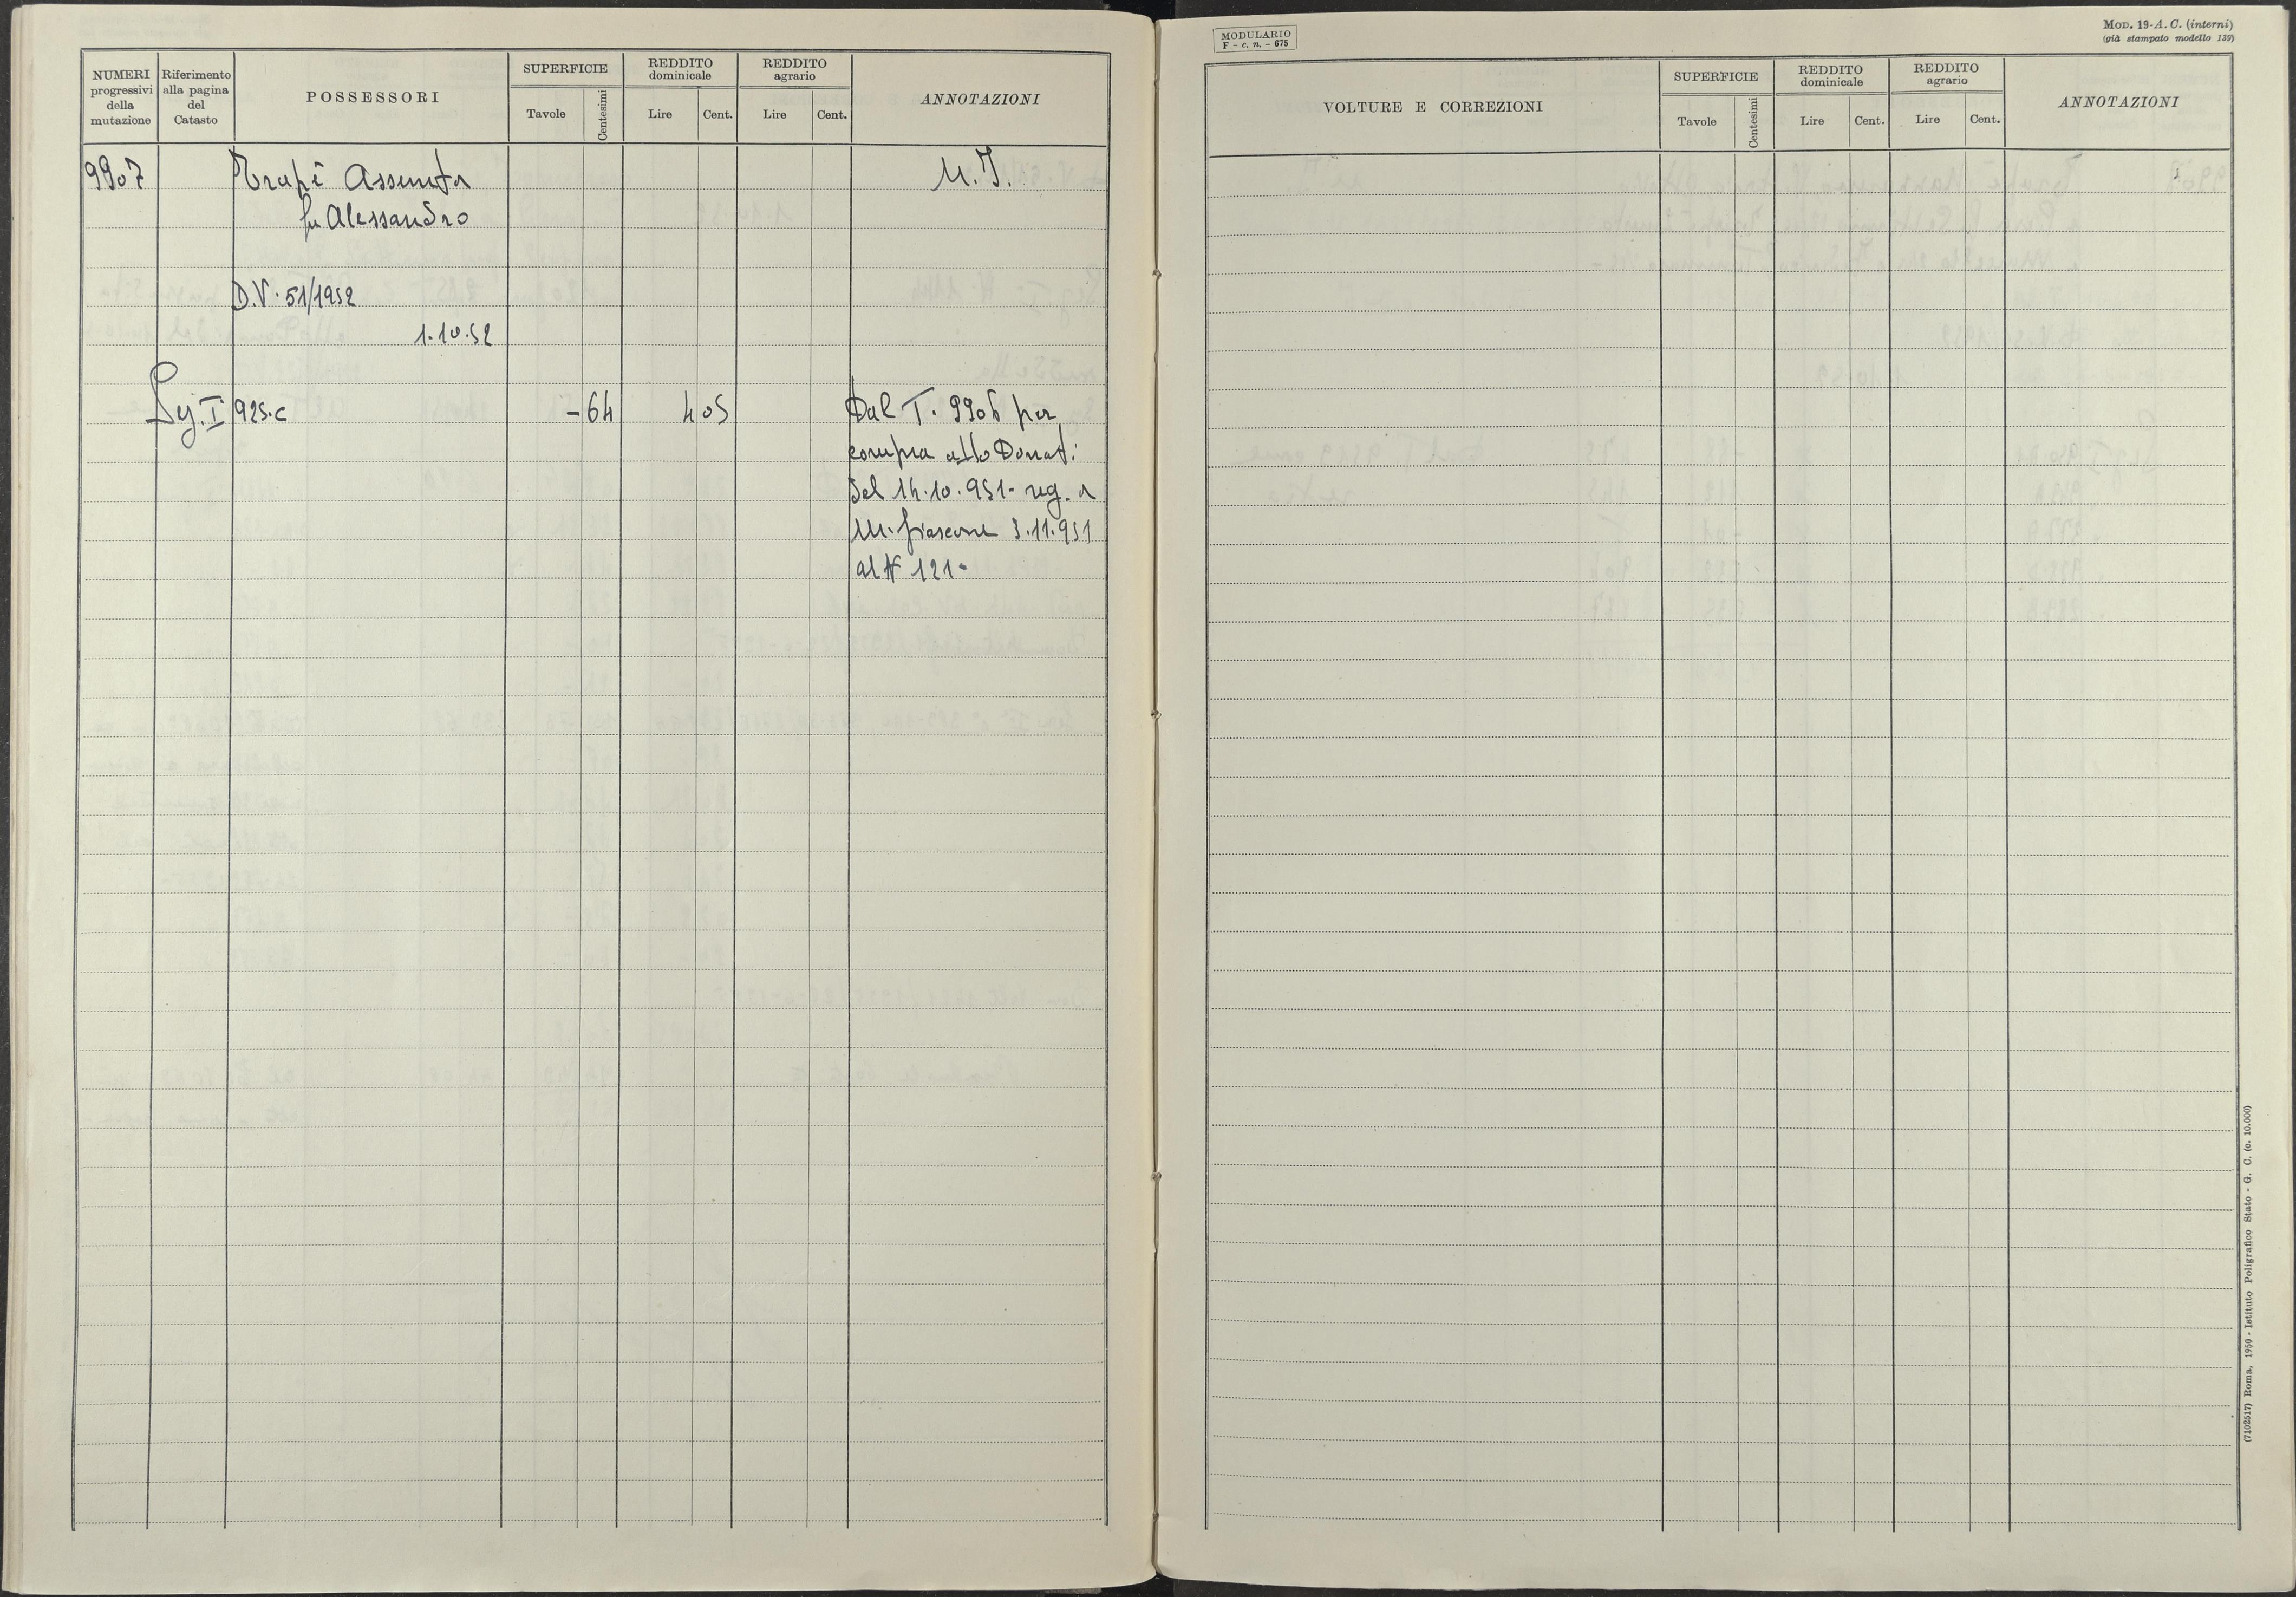 NUMERI progressivi della mutazione
Riferimento alla pagina del Catasto
POSSESSORI
SUPERFICIE
Tavole
Centesimi
REDDITO dominicale
Lire
Cent.
REDDITO agrario
Lire
Cent.
ANNOTAZIONI
9907 Trapè Assunta M.I.
fu Alessandro
D.V. 51/1952
1.10.52
Sez. I 925.c - 64 4 05 Dal T. 9906 per
compra atto Donati
del 14.10.951 - reg. a
M. fiascone 3.11.951
al N 121 -
MODULARIO
F - c. n. - 675
MOD. 19-A. C. (interni)
(già stampato modello 139)
VOLTURE E CORREZIONI
SUPERFICIE
Tavole
Centesimi
REDDITO dominicale
Lire
Cent.
REDDITO agrario
Lire
Cent.
ANNOTAZIONI
(7102517) Roma, 1950 - Istituto Poligrafico Stato - G. C. (c. 10.000)